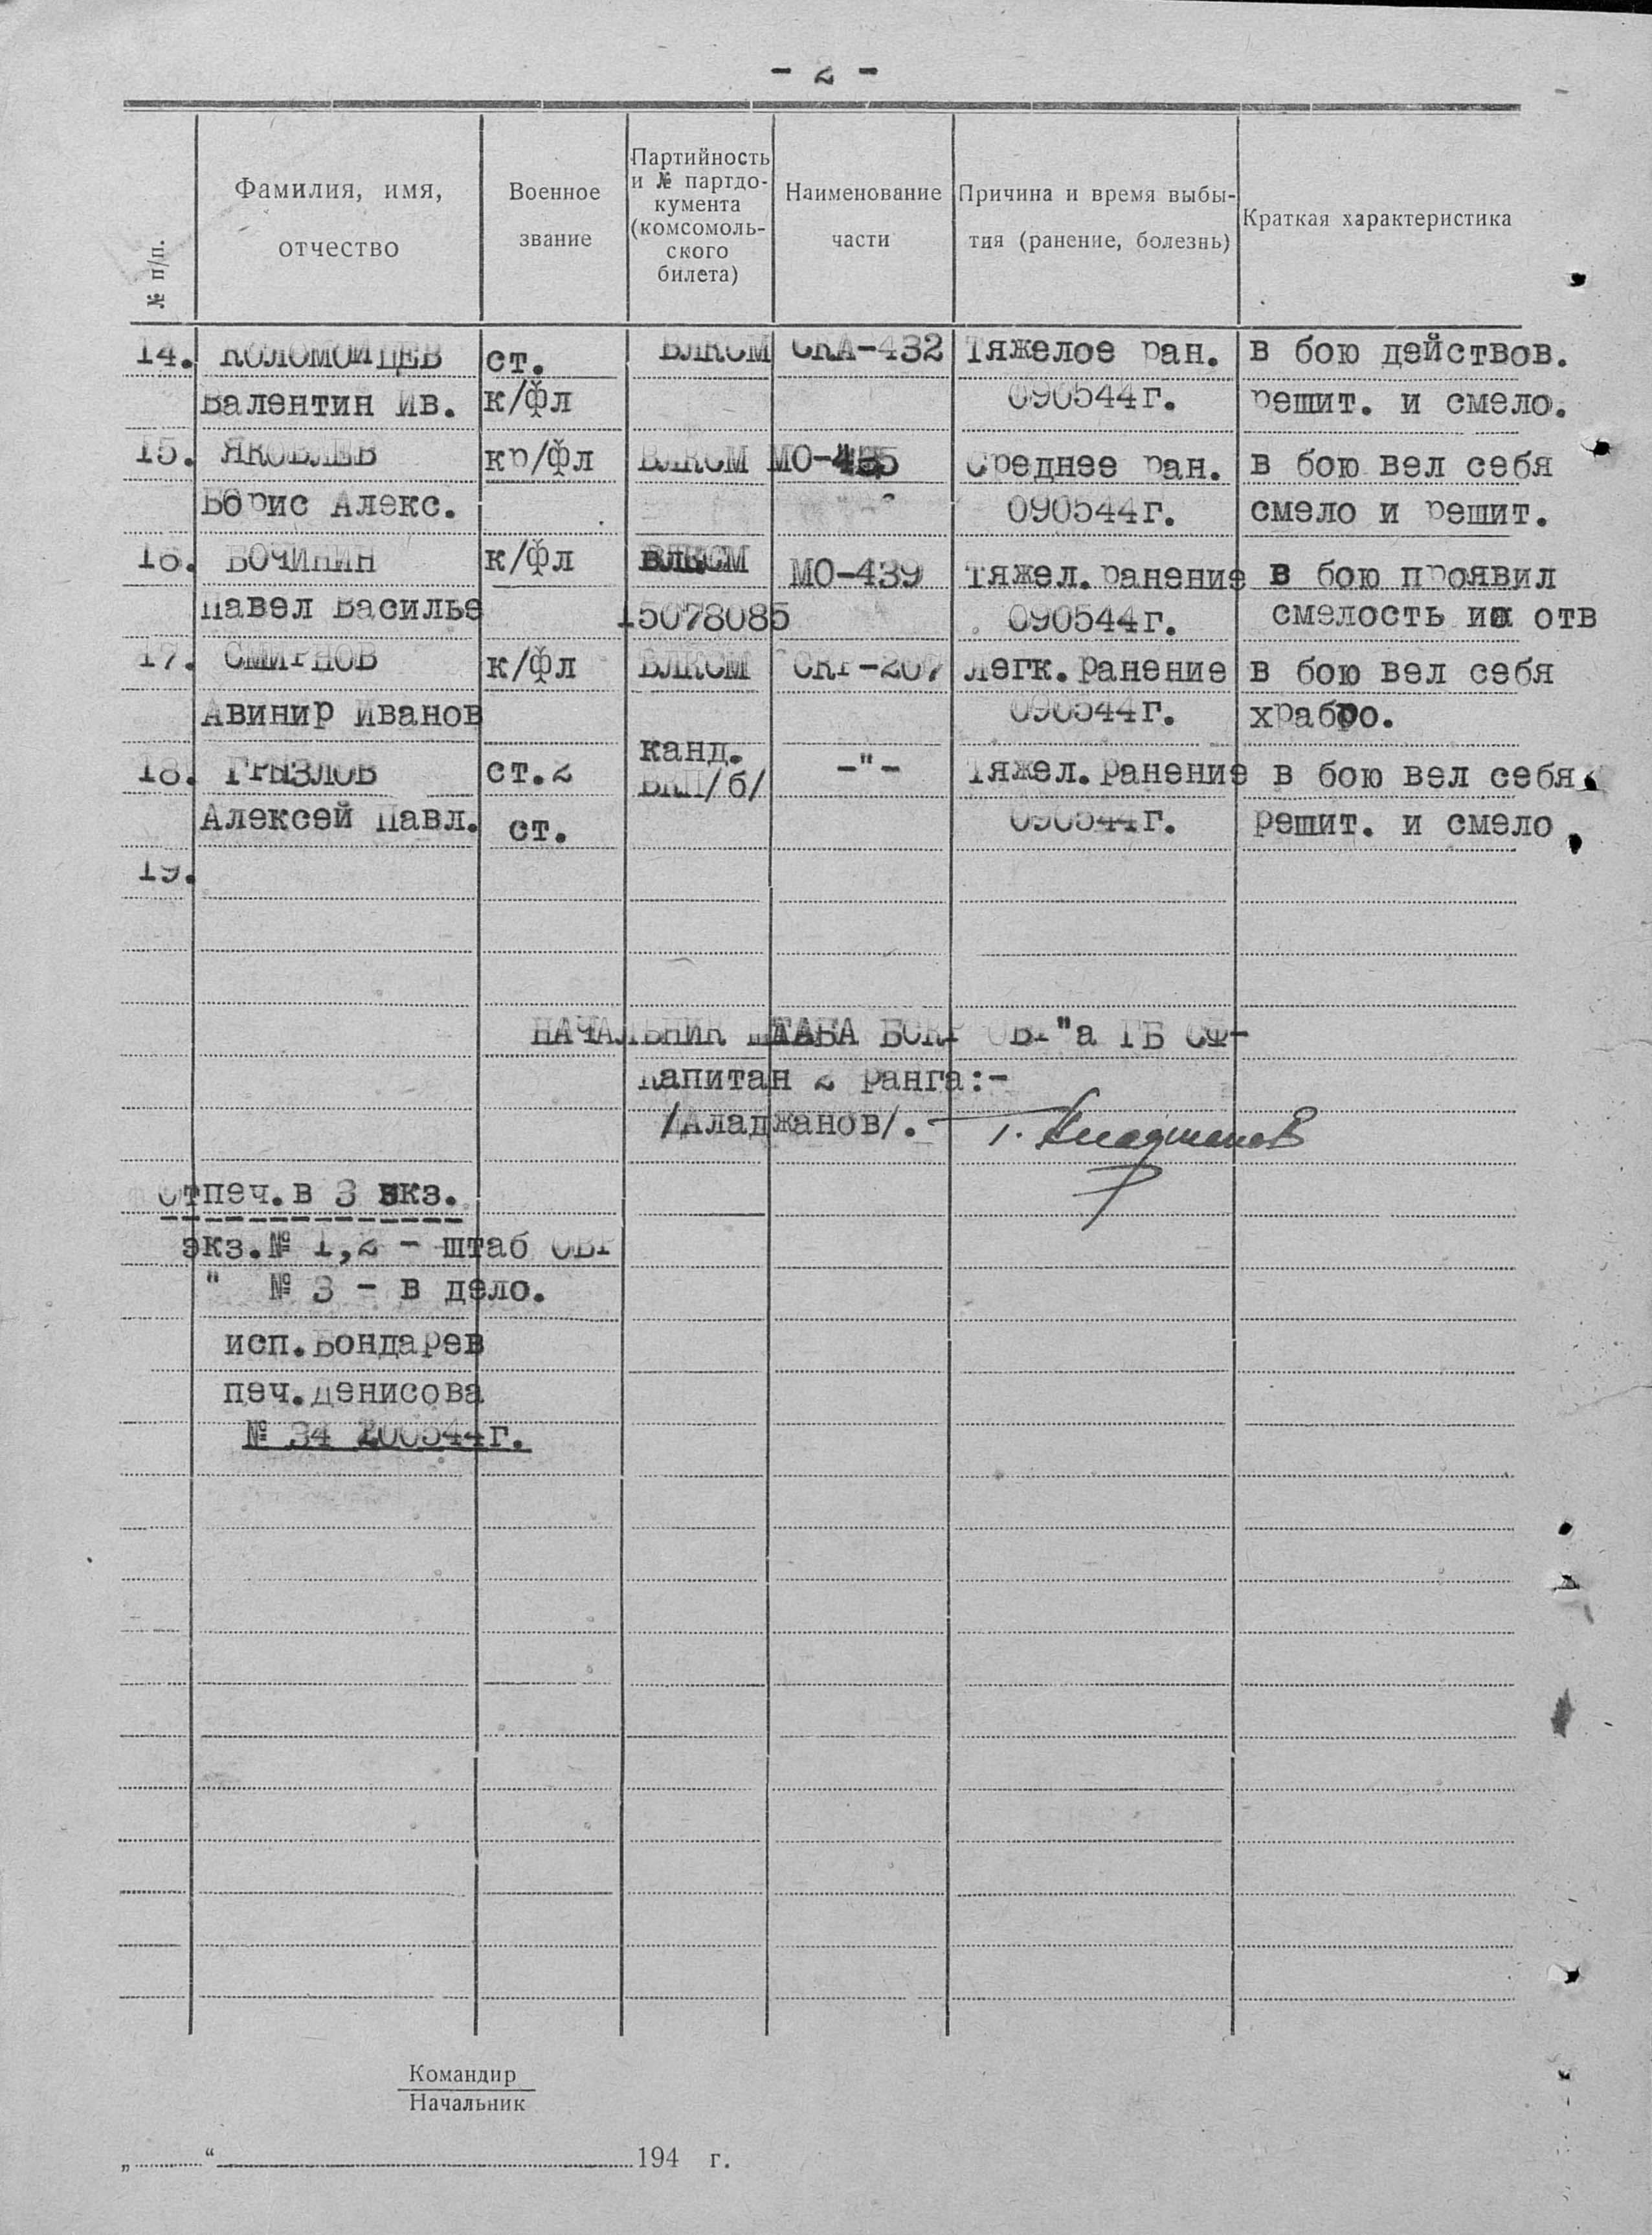 - 2 -
№ п/п.
Фамилия, имя,
отчество
Военное
звание
Партийность
и № партдо-
кумента
(комсомоль-
ского
билета)
Наименование
части
Причина и время выбы-
тия (ранение, болезнь)
Краткая характеристика
14. КОЛОМОЙЦЕВ ст. ВЛКСМ СКА-432 Тяжелое ран. в бою действов.
Валентин Ив. к/фл 090544г. решит. и смело.
15. ЯКОВЛЕВ кр/фл ВЛКСМ МО-455 Среднее ран. в бою вел себя
Борис Алекс. 090544г. смело и решит.
16. БОЧИНИН к/фл ВЛКСМ МО-439 тяжел.ранение в бою проявил
Павел Василье 15078085 090544г. смелость и отв
17. СМИРНОВ к/фл ВЛКСМ СКР-207 легк.ранение в бою вел себя
Авинир Иванов 090544г. храбро.
18. ГРЫЗЛОВ ст.2 канд. -"- Тяжел.ранение в бою вел себя
ВКП/б/
Алексей Павл. ст. 090544г. решит. и смело.
19.
НАЧАЛЬНИК ШТАБА БСКР ОВР"а ГБ СФ-
Капитан 2 ранга:-
/Аладжанов/.- Г. Аладжанов
Отпеч.в 3 экз.
экз.№ 1,2 - штаб ОВР
" № 3 - в дело.
исп.Бондарев
печ.Денисова
№ 34 200544г.
Командир
Начальник
„ “ 194 г.